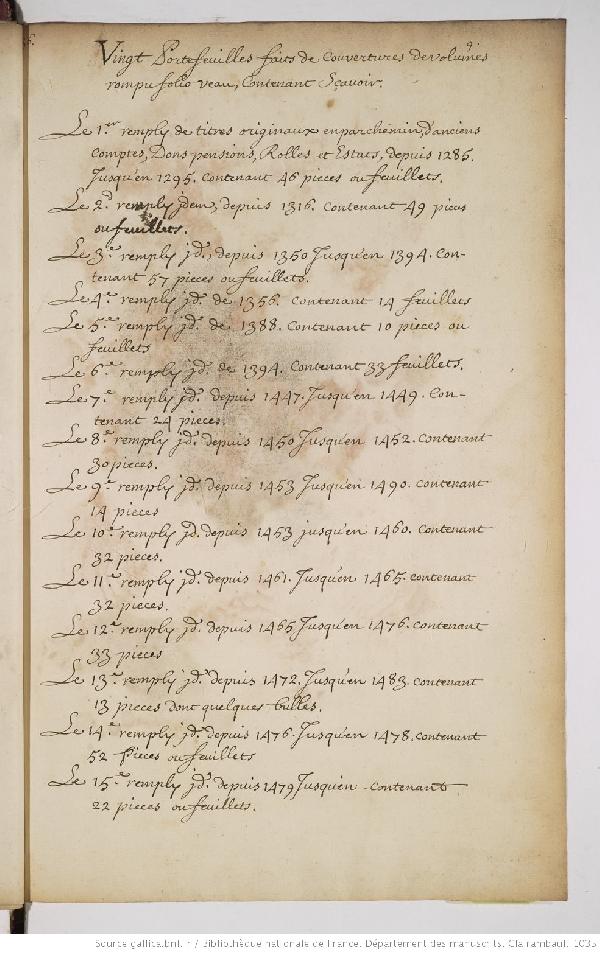 Vingt Portefeuilles faits de Couvertures de volumes
rompu folio veau, Contenant Sçavoir.
Le 1.er remply de titres originaux en parchemin, d'anciens
Comptes, Dons pensions, Rolles et Estats, depuis 1285.
Jusqu'en 1295. Contenant 46 pieces ou feuillets.
Le 2.d remply jdem, depuis 1316. Contenant 49 pieces
ou feuillets.
Le 3.e remply jd. depuis 1350 Jusqu'en 1394. Con-
tenant 57 pieces ou feuillets.
Le 4.e remply jd. de 1356. Contenant 14 feuillets
Le 5.e remply jd. de 1388. Contenant 10 pieces ou
feuillets
Le 6.e remply jd. de 1394. Contenant 33 feuillets.
Le 7.e remply jd. depuis 1447. Jusqu'en 1449. Con-
tenant 24 pieces
Le 8.e remply jd. depuis 1450 Jusqu'en 1452. Contenant
30 pieces.
Le 9.e remply jd. depuis 1453 Jusqu'en 1490. Contenant
14 pieces
Le 10.e remply jd. depuis 1453 jusqu'en 1460. Contenant
32 pieces.
Le 11.e remply jd. depuis 1461. Jusqu'en 1465. Contenant
32 pieces.
Le 12.e remply jd. depuis 1465 Jusqu'en 1476. Contenant
33 pieces
Le 13.e remply jd. depuis 1472. Jusqu'en 1483. Contenant
13 pieces dont quelques bulles.
Le 14.e remply jd. depuis 1476. Jusqu'en 1478. Contenant
52 pieces ou feuillets
Le 15.e remply jd. depuis 1479 Jusqu'en - Contenant
22 pieces ou feuillets.
Source gallica.bnf.fr / Bibliothèque nationale de France. Département des manuscrits. Clairambault 1035